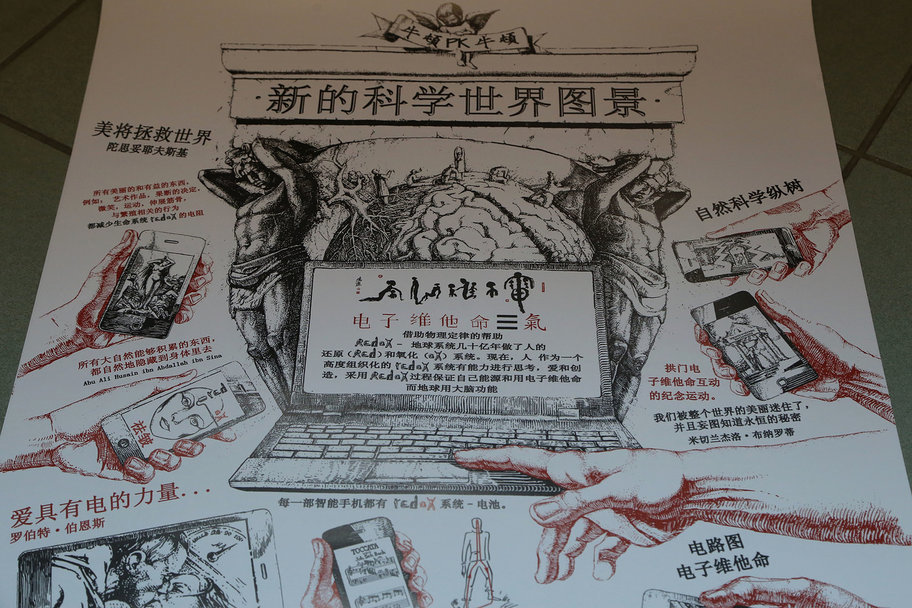 牛顿PK牛顿
·新的科学世界图景·
美将拯救世界
陀思妥耶夫斯基
所有美丽的和有益的东西,
例如: 艺术作品, 果断的决定,
微笑, 运动, 伸展筋骨,
与繁殖相关的行为
都减少生命系统 redoX 的电阻
自然科学纵树
电子维他命三氣
借助物理定律的帮助
redoX - 地球系统几十亿年做了人的
还原 (Red) 和氧化 (oX) 系统。现在, 人 作为一个
高度组织化的 redoX 系统有能力进行思考, 爱和创
造, 采用 redoX 过程保证自己能源和用电子维他命
而地球用大脑功能
所有大自然能够积累的东西,
都自然地隐藏到身体里去
Abu Ali Husain ibn Abdallah ibn Sina
拱门电
子维他命互动
的纪念运动。
我们被整个世界的美丽迷住了,
并且妄图知道永恒的秘密
米切兰杰洛·布纳罗蒂
redoX
爱具有电的力量...
罗伯特·伯恩斯
每一部智能手机都有 redoX 系统-电池。
TOCCATA
电路图
电子维他命